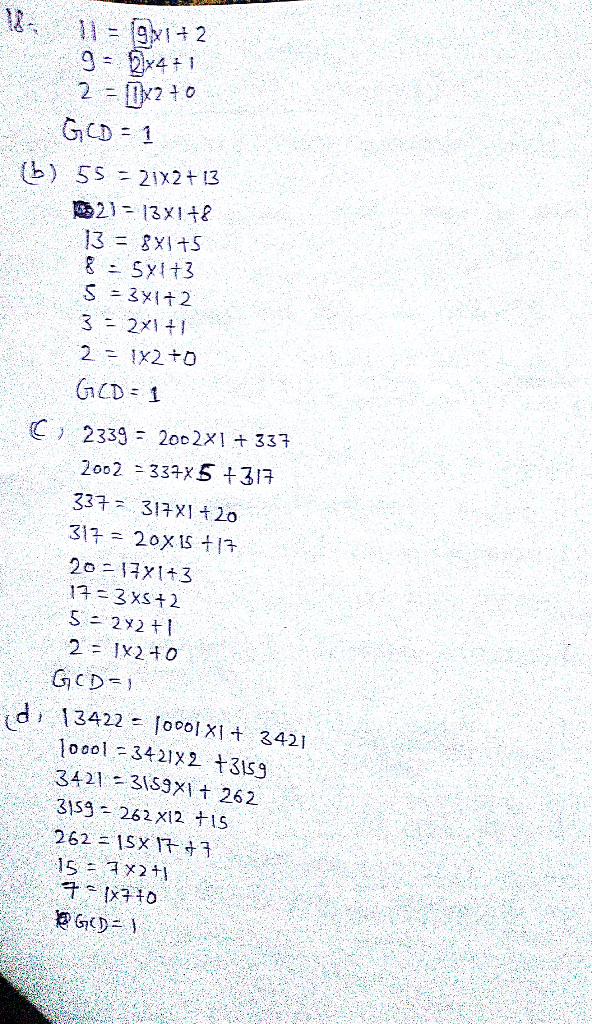 18. 11 = 9x1+2
9 = 2x4+1
2 = 1x2+0
GCD = 1
(b) 55 = 21x2+13
21 = 13x1+8
13 = 8x1+5
8 = 5x1+3
5 = 3x1+2
3 = 2x1+1
2 = 1x2+0
GCD = 1
C) 2339 = 2002x1+337
2002 = 337x5+317
337 = 317x1+20
317 = 20x15+17
20 = 17x1+3
17 = 3x5+2
5 = 2x2+1
2 = 1x2+0
GCD = 1
(d) 13422 = 10001x1+3421
10001 = 3421x2+3159
3421 = 3159x1+262
3159 = 262x12+15
262 = 15x17+7
15 = 7x2+1
7 = 1x7+0
GCD = 1